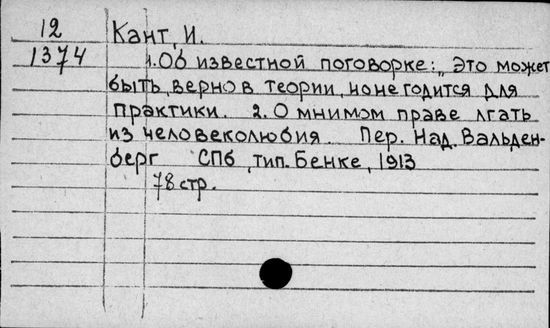 12
1374
Кант, И.
1. Об известной поговорке: „Это может
быть верно в теории, но не годится для
практики. 2. О мнимом праве лгать
из человеколюбия. Пер. Над. Вальден-
берг СПб, тип. Бенке, 1913
78 стр.